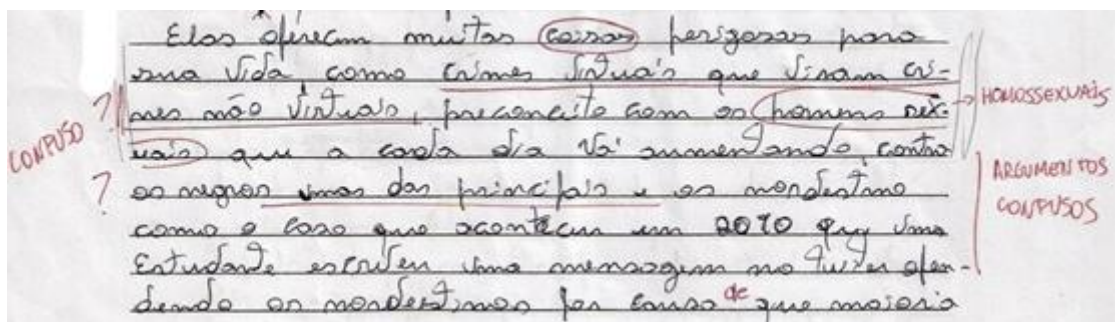 Elas oferecem muitas coisas perigosas para
sua vida, como crimes virtuais que viram cri-
mes não virtuais, preconceito com os homens sex-
uais que a cada dia vá aumentando, contra
os negros umas das principais e os nordestino
como o caso que aconteceu em 2010 que uma
Estudante escreveu uma mensagem no twiter ofen-
dendo os nordestinos por causa de que maioria
CONFUSO
?
?
HOMOSSEXUAIS
ARGUMENTOS
CONFUSOS